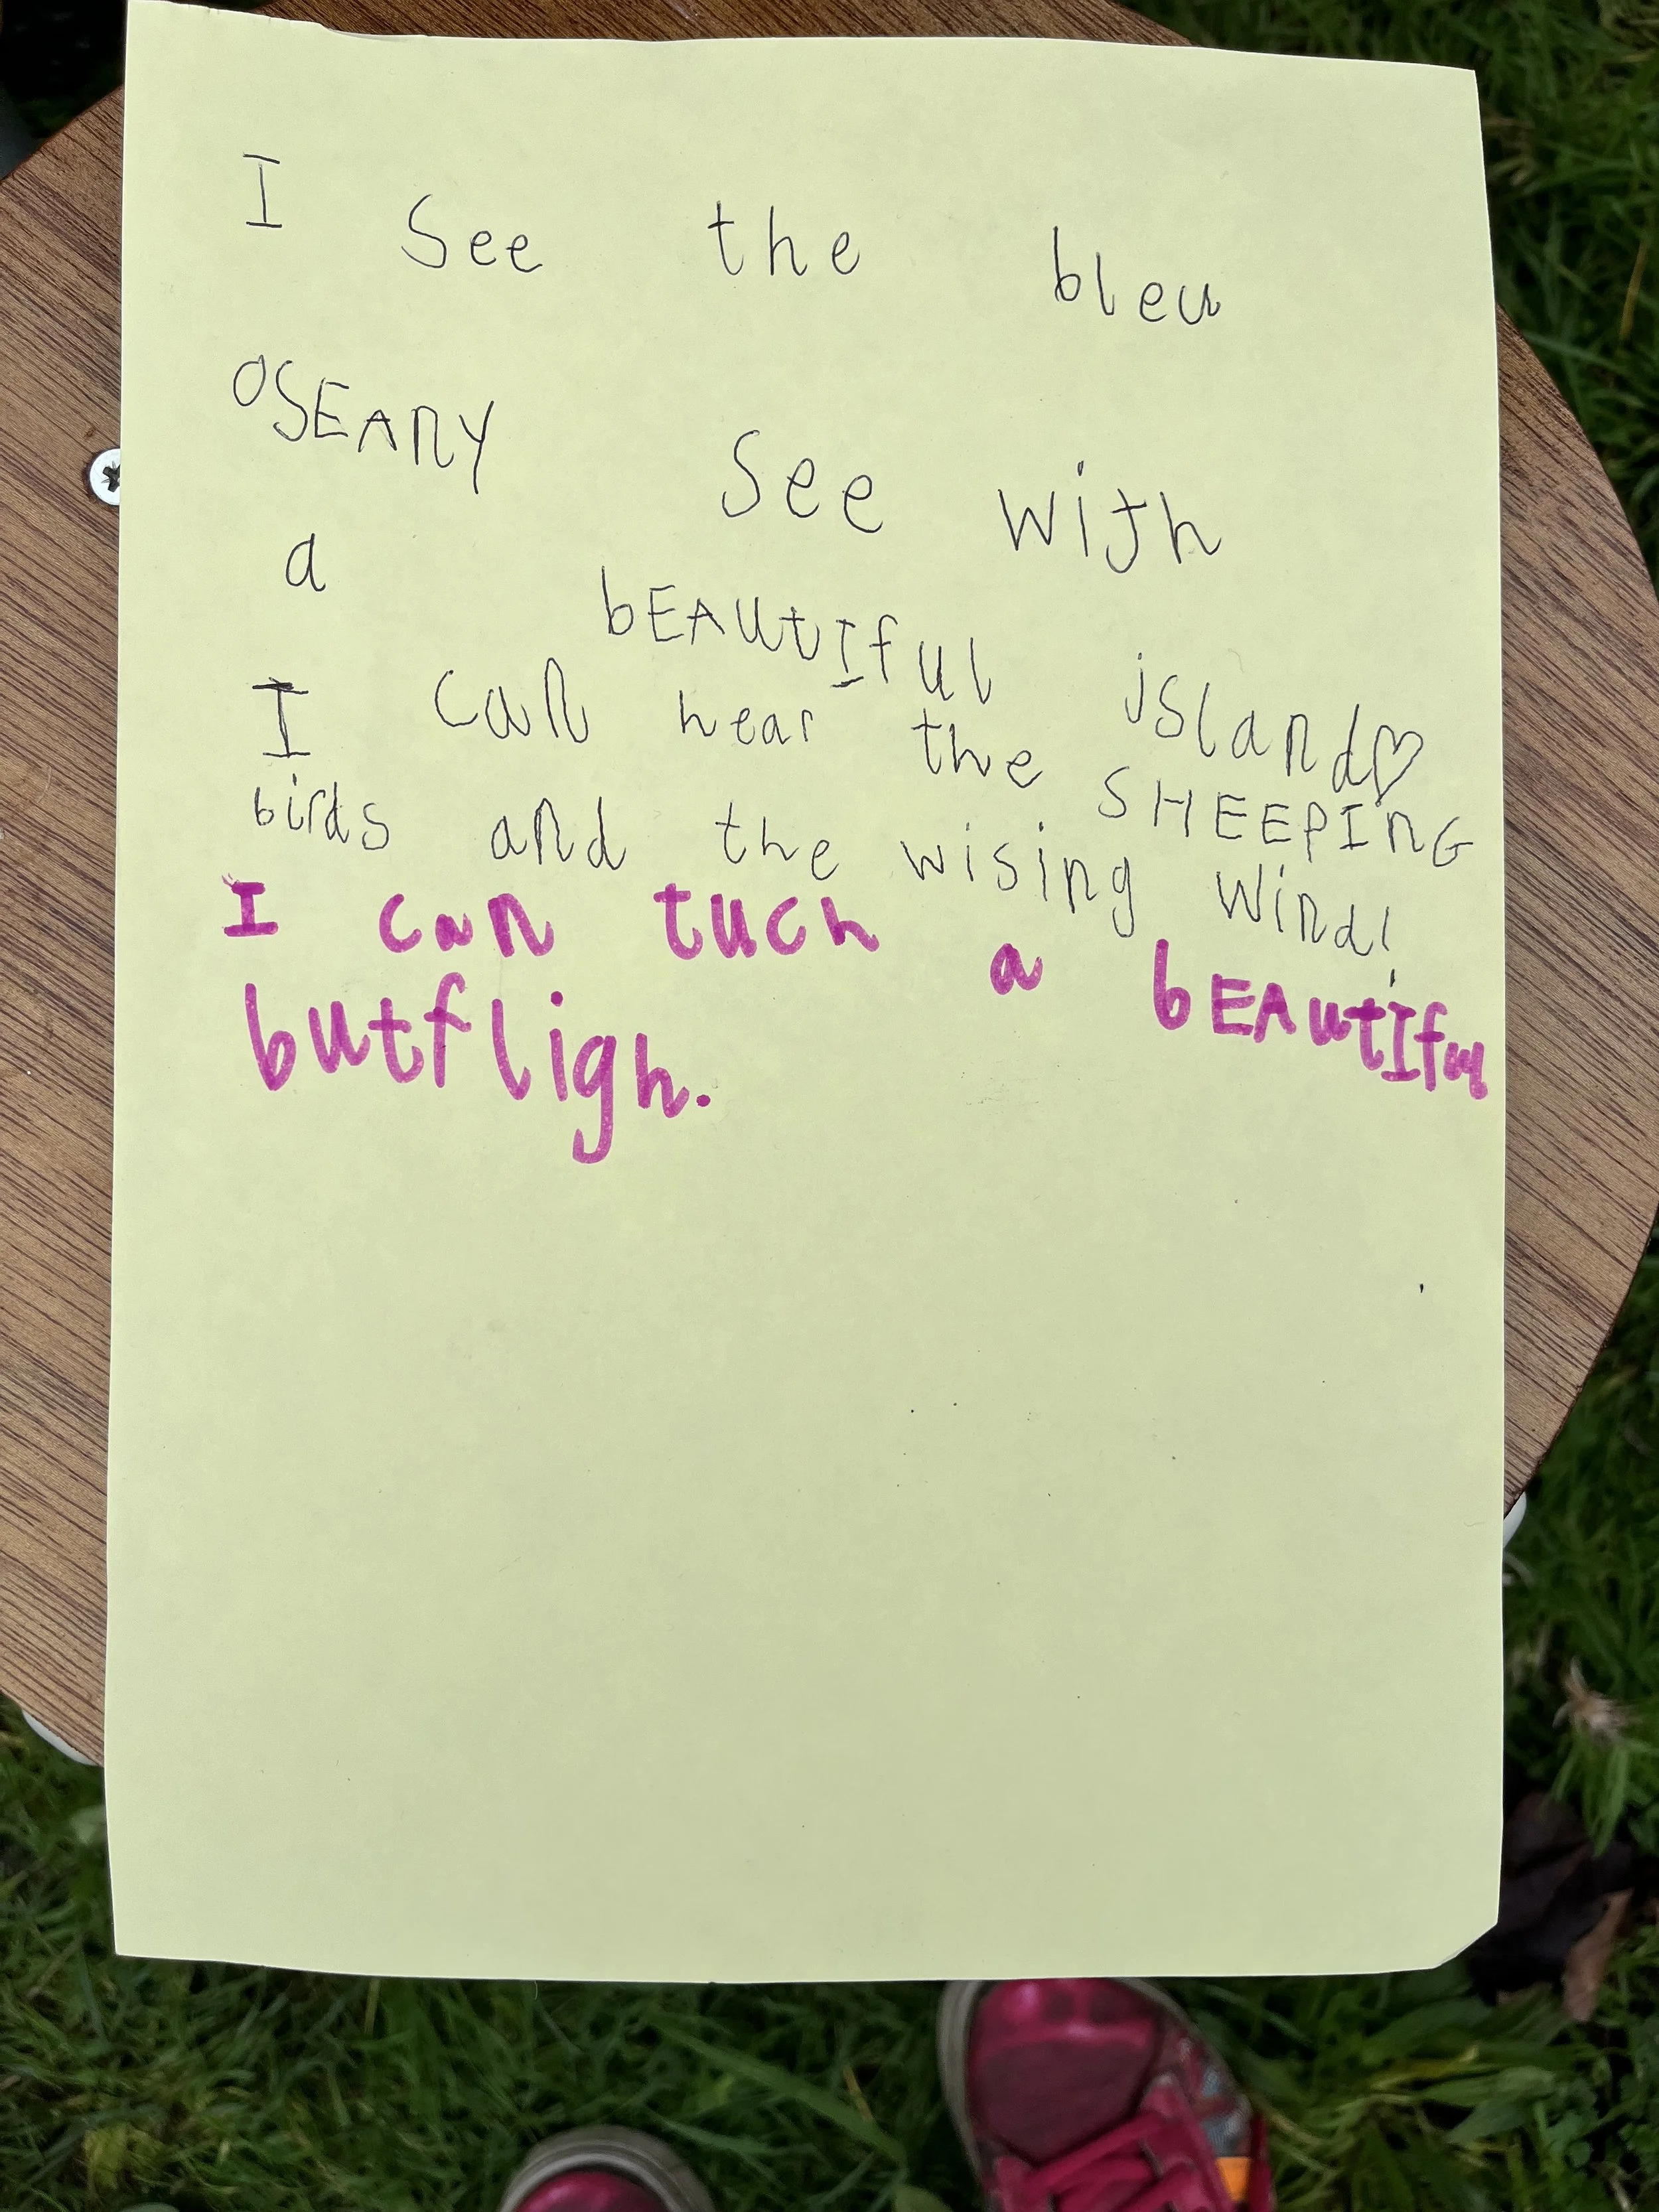 I see the bleu
OSEANY see with
a bEAUtIful island♡
I can hear the SHEEPING
birds and the wising wind!
I can tuch a bEAutIful
butfligh.